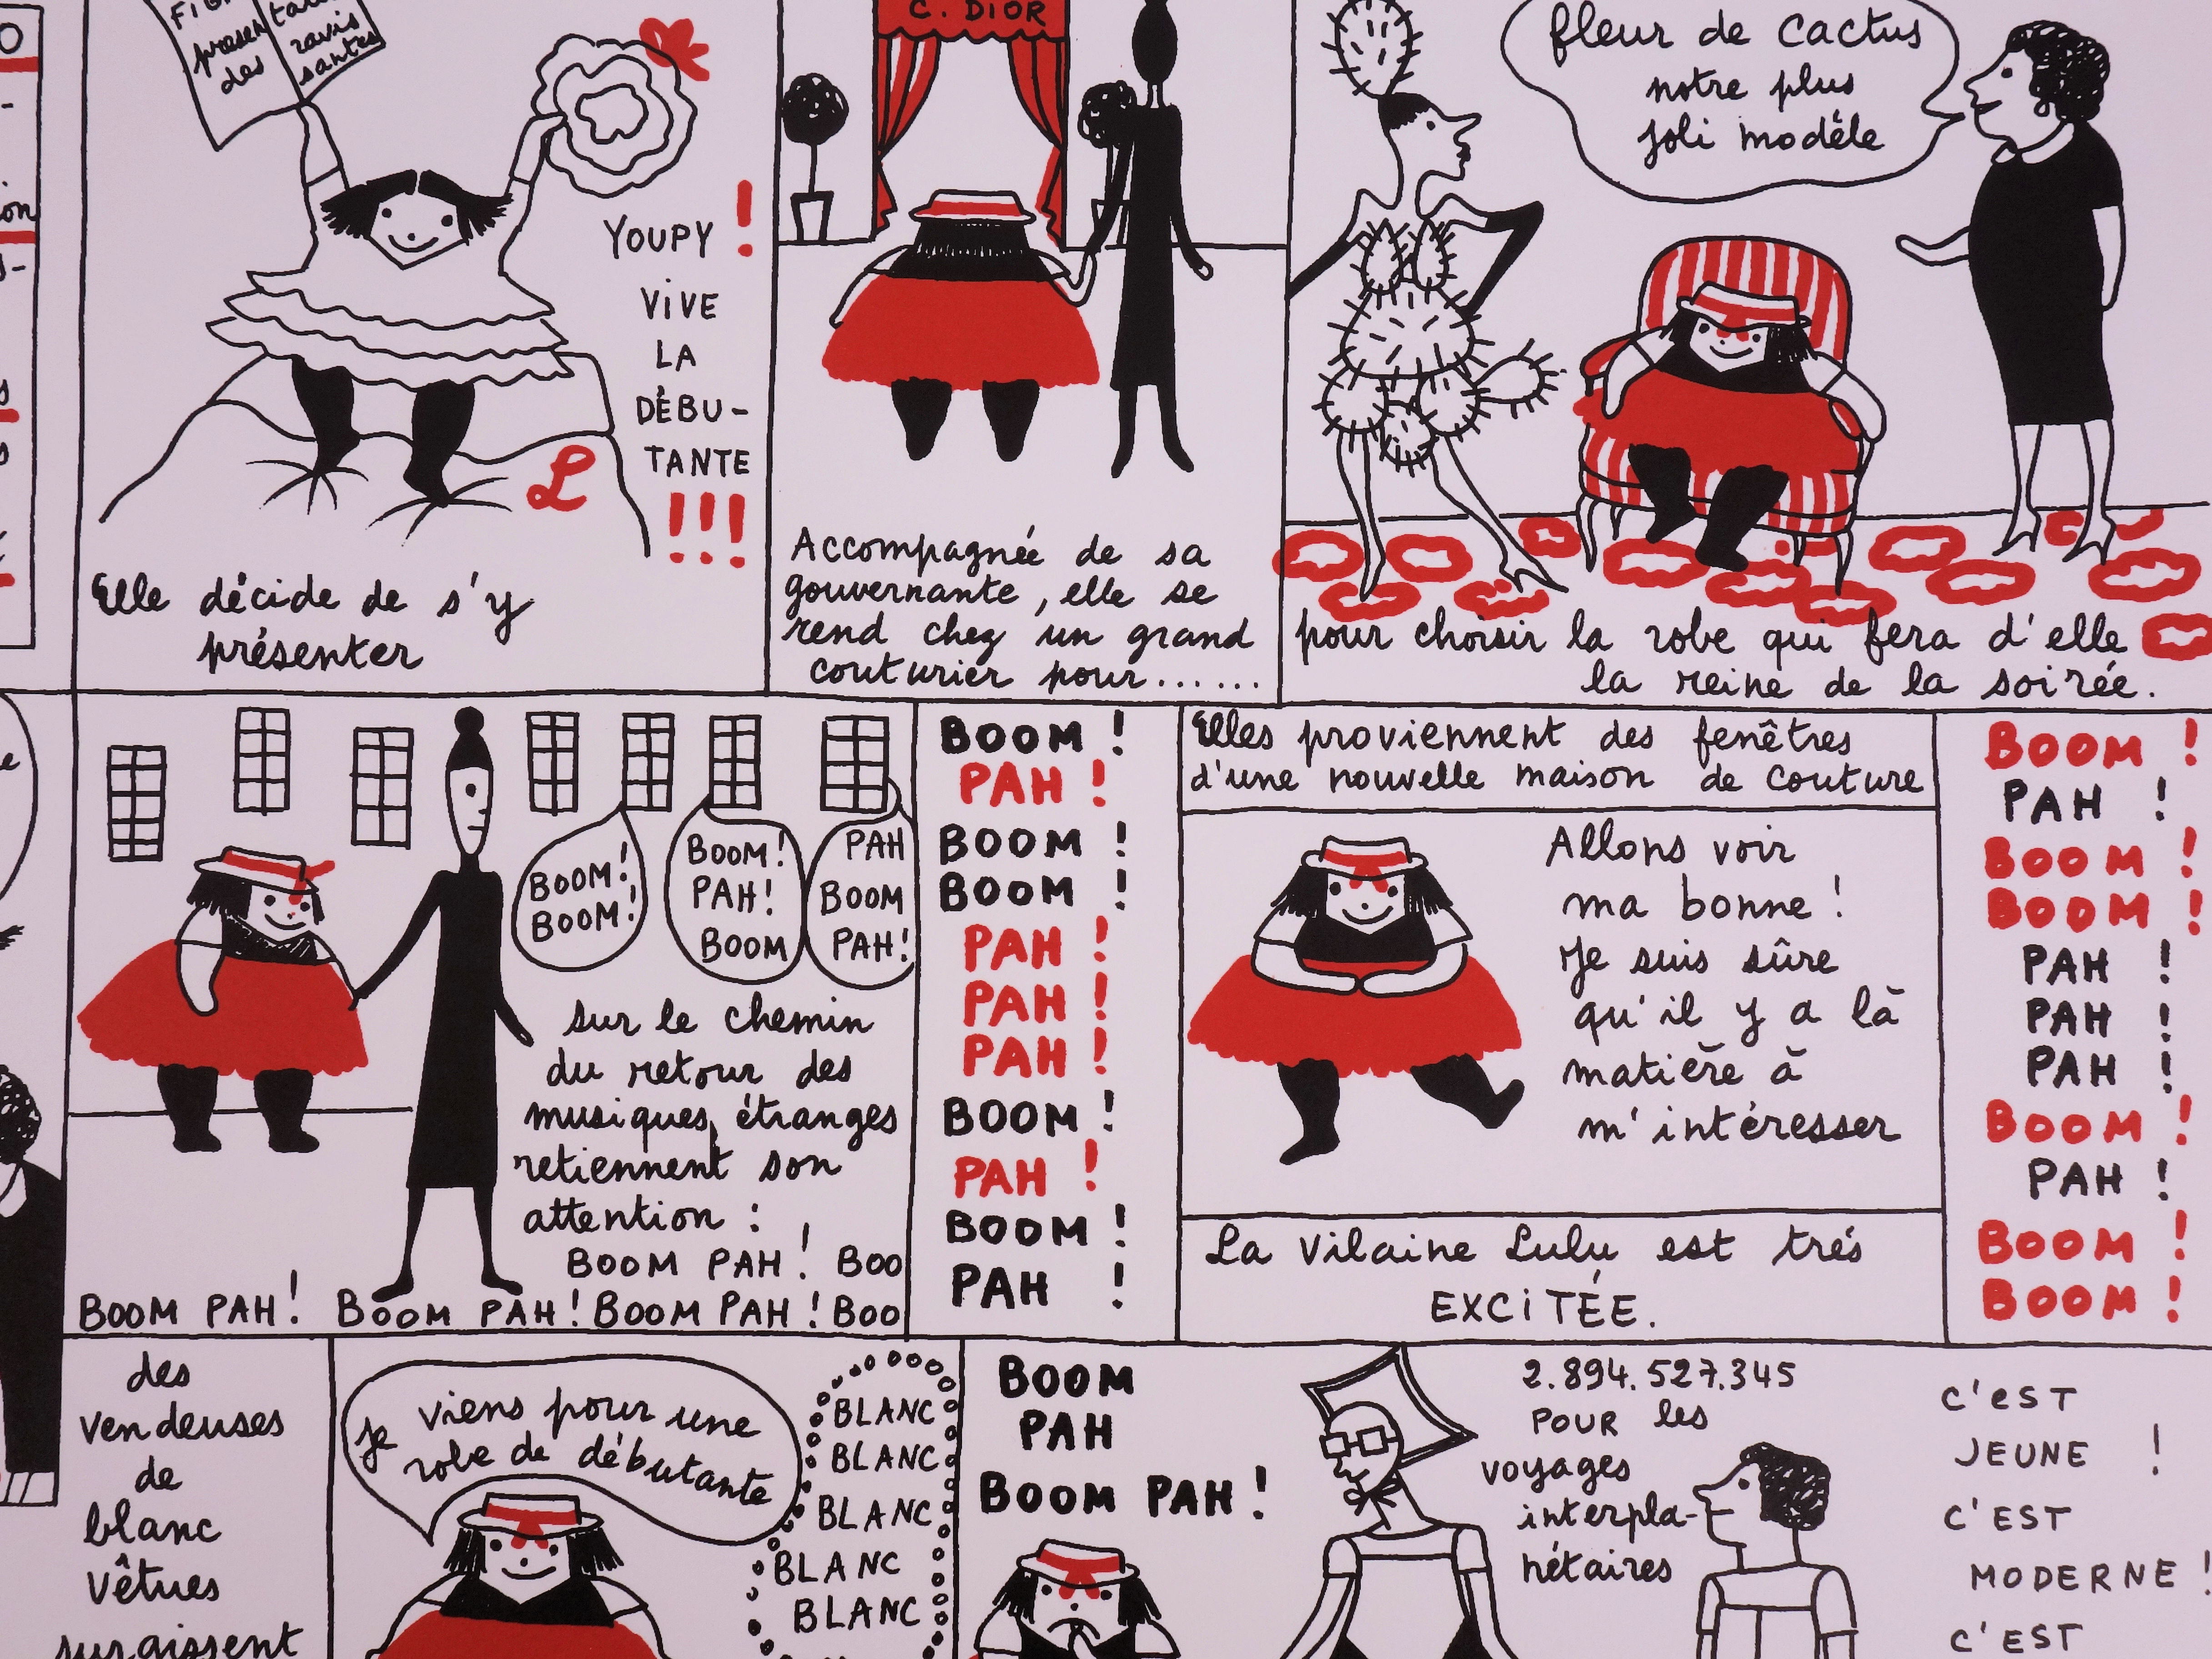 présen
des
ravis
santes
YOUPY !
VIVE
LA
DÉBU-
TANTE
!!!
L
Elle décide de s'y
présenter
C. DIOR
Accompagnée de sa
gouvernante, elle se
rend chez un grand
couturier pour......
fleur de cactus
notre plus
joli modèle
pour choisir la robe qui fera d'elle
la reine de la soirée.
BOOM!
BOOM!
BOOM!
PAH!
BOOM
PAH
BOOM
PAH!
sur le chemin
du retour des
musiques étranges
retiennent son
attention :
BOOM PAH! BOO
BOOM PAH! BOOM PAH! BOOM PAH! BOO
BOOM !
PAH !
BOOM !
BOOM !
PAH !
PAH !
PAH !
BOOM !
PAH !
BOOM !
PAH !
Elles proviennent des fenêtres
d'une nouvelle maison de couture
Allons voir
ma bonne !
Je suis sûre
qu'il y a là
matière à
m'intéresser
La Vilaine Lulu est très
EXCITÉE.
BOOM !
PAH !
BOOM !
BOOM !
PAH !
PAH !
PAH !
BOOM !
PAH !
BOOM !
BOOM !
des
vendeuses
de
blanc
vêtues
surgissent
je viens pour une
robe de débutante
BLANC
BLANC
BLANC
BLANC
BLANC
BOOM
PAH
BOOM PAH !
2.894.527.345
POUR les
voyages
interpla-
nétaires
C'EST
JEUNE !
C'EST
MODERNE !
C'EST